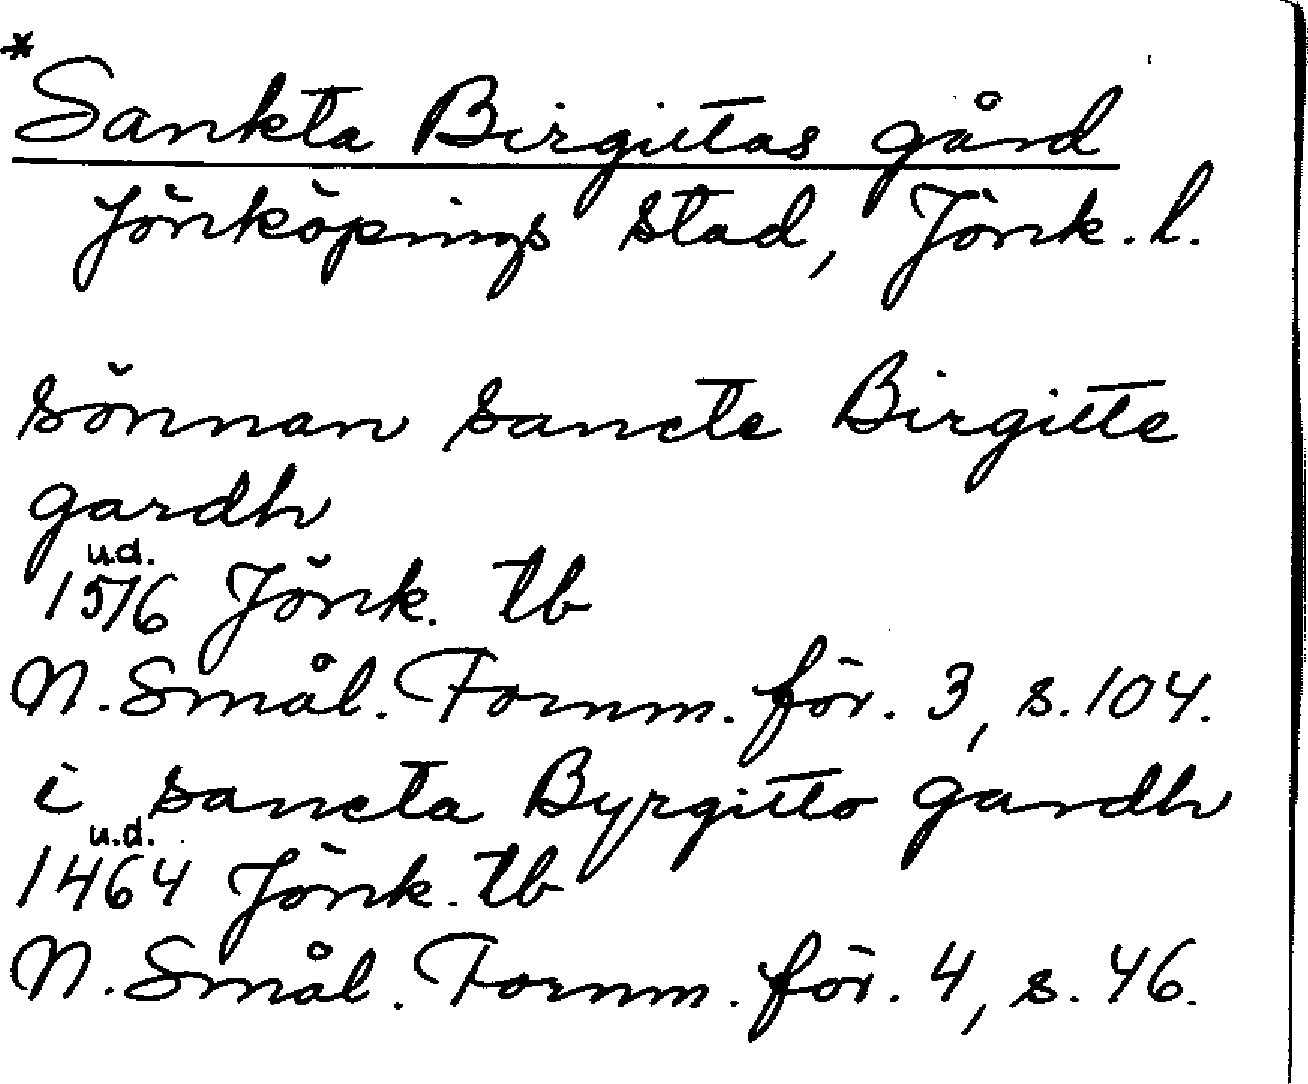 *
Sankta Birgittas gård
Jönköpings stad, Jönk. l.
sönnan sancte Birgitte
gardh
u.d.
1516 Jönk. tb
N. Smål. Fornm. för. 3, s. 104.
i sancta Byrgitto gardh
u.d.
1464 Jönk. tb
N. Smål. Fornm. för. 4, s. 46.